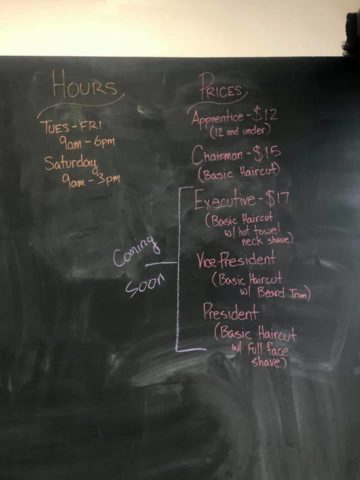 HOURS
TUES-FRI
9am-6pm
Saturday
9am-3pm
PRICES
Apprentice-$12
(12 and under)
Chairman-$15
(Basic Haircut)
Executive-$17
(Basic Haircut
w/ hot towel
neck shave)
Vice President
(Basic Haircut
w/ Beard Trim)
President
(Basic Haircut
w/ Full face
shave)
Coming
Soon